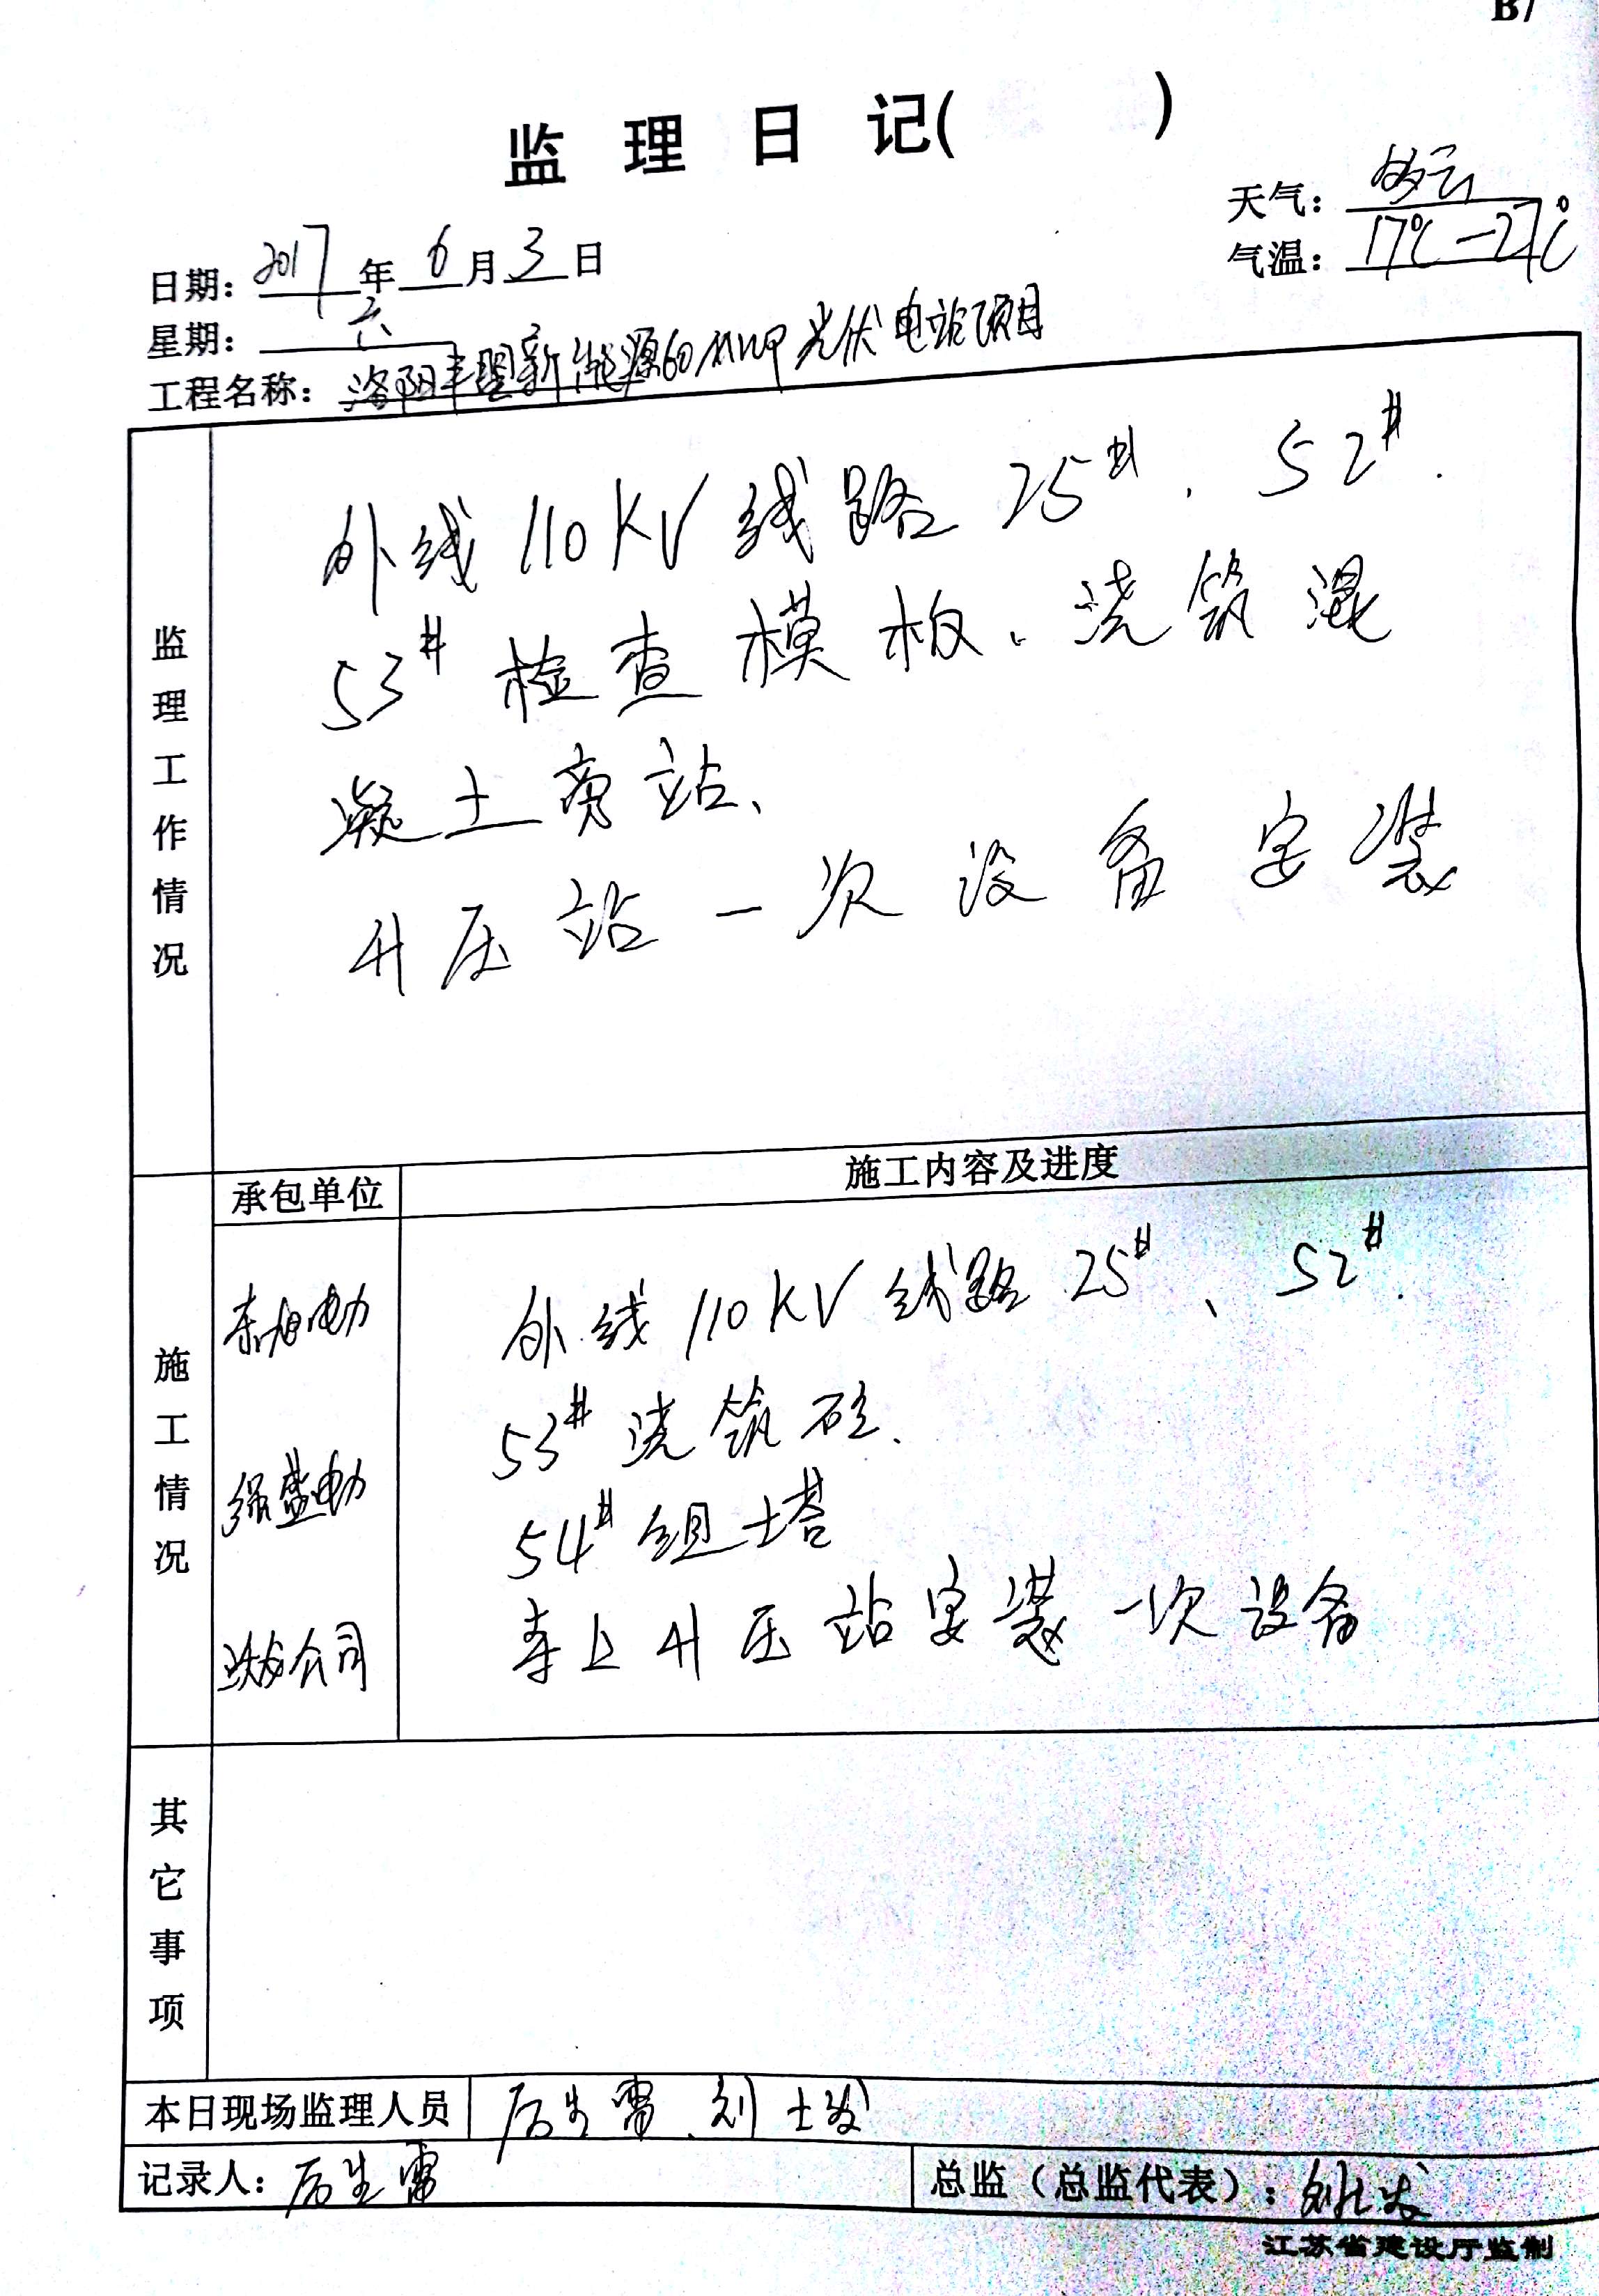 B7
监理日记( )
天气：多云
气温：17℃-27℃
日期：2017年6月3日
星期：六
工程名称：洛阳丰盟新能源60MWP光伏电站项目
监理工作情况
外线110KV线路25#、52#.
53#检查模板、浇筑混
凝土旁站、
升压站一次设备安装
施工情况
承包单位
施工内容及进度
东旭电力
外线110KV线路25#、52#.
53#浇筑砼、
盛电力
54#组塔
公司
上升压站安装一次设备
其它事项
本日现场监理人员
生雷、刘士发
记录人：生雷
总监（总监代表）：刘士发
江苏省建设厅监制